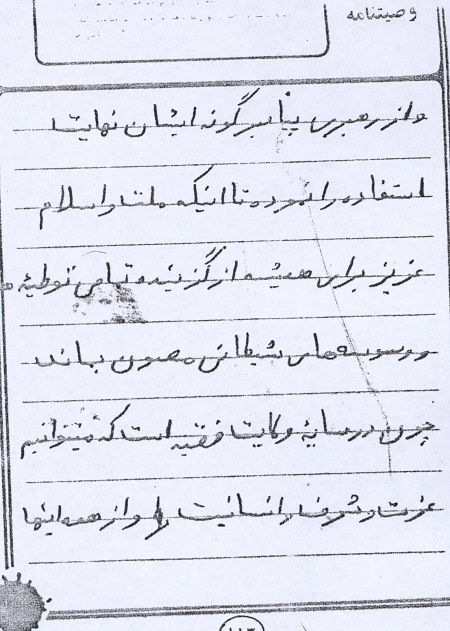 وصیتنامه
و از رهبری پیامبر گونه ایشان نهایت
استفاده را نموده تا اینکه ملت و اسلام
عزیز برای همیشه از گزینده تمامی توطئه
و وسوسه‌های شیطانی مصون بماند
چون در سایهٔ ولایت فقیه است که میتوانیم
عزت و شرف و انسانیت را و از همه اینها
۱۱۳